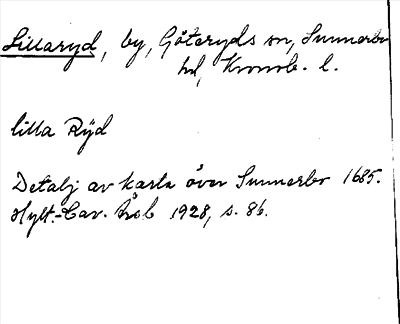 Lillaryd, by, Göteryds sn, Sunnerbo
hd, Kronob. l.
lilla Rÿd
Detalj av karta över Sunnerbo 1685.
Hylt.-Cav. håb 1928, s. 86.